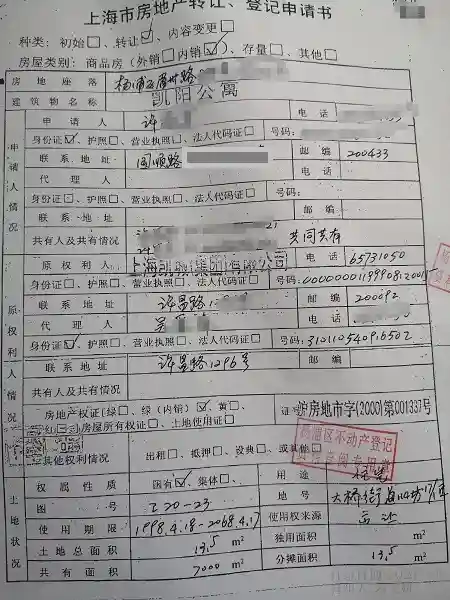 上海市房地产转让、登记申请书
种类：初始□、转让☑、内容变更□
房屋类别：商品房（外销□内销☑）、存量□、其他□
房地坐落 杨浦区眉州路
建筑物名称 凯阳公寓
申请人情况
申请人 许 电话
身份证☑、护照□、营业执照□、法人代码证□ 号码：
联系地址 国顺路 邮编 200433
代理人 电话
身份证□、护照□、营业执照□、法人代码证□ 号码：
联系地址 邮编
共有人及共有情况 共同共有
原权利人情况
原权利人 上海凯 集团有限公司 电话 65731050
身份证□、护照□、营业执照□、法人代码证□ 号码：
联系地址 许昌路 邮编 200092
代理人 吴 电话
身份证☑、护照□、营业执照□、法人代码证□ 号码：
联系地址 许昌路1296号 邮编
共有人及共有情况
房地产权证（绿□、绿（内销）☑、黄□、
房屋所有权证□、土地使用证□
证号 沪房地市字(2000)第001337号
其他权利情况 出租□、抵押□、设典□、或其他
杨浦区不动产登记
专用章
土地状况
权属性质 国有☑、集体□、 用途 住宅
图号 I20-23 地号 大桥街道114坊
使用期限 1998.4.18-2068.4.17 使用权来源 出让
土地总面积 13.5 m² 独用面积 m²
共有面积 7000 m² 分摊面积 13.5 m²